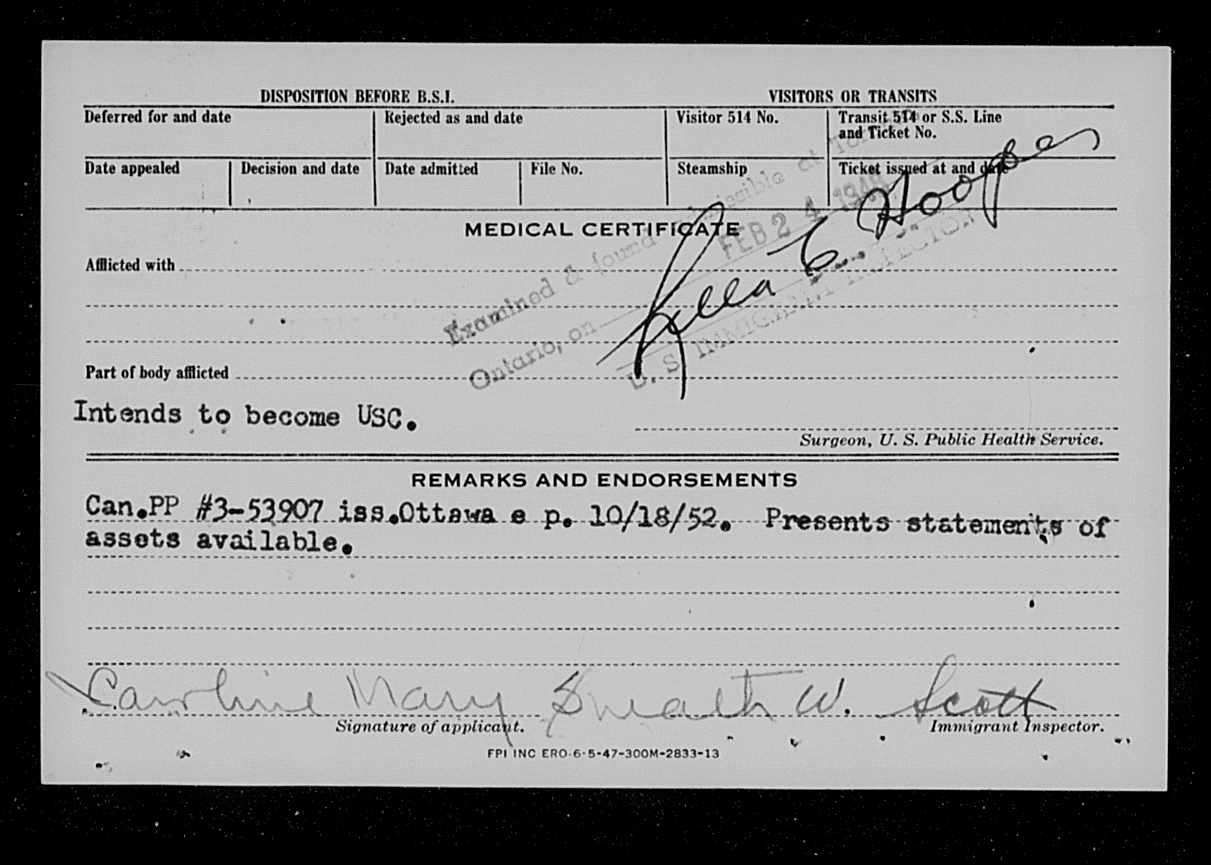 DISPOSITION BEFORE B.S.I. VISITORS OR TRANSITS
Deferred for and date Rejected as and date Visitor 514 No. Transit 514 or S.S. Line
and Ticket No.
Date appealed Decision and date Date admitted File No. Steamship Ticket issued at and date
MEDICAL CERTIFICATE
Examined & found admissible at
Ontario, on FEB 24 1948
U. S. IMMIGRANT INSPECTOR
Afflicted with
Part of body afflicted
Intends to become USC.
Surgeon, U. S. Public Health Service.
REMARKS AND ENDORSEMENTS
Can.PP #3-53907 iss.Ottawa e p. 10/18/52. Presents statements of
assets available.
Caroline Mary W. Scott
Signature of applicant. Immigrant Inspector.
FPI INC ERO-6-5-47-300M-2833-13